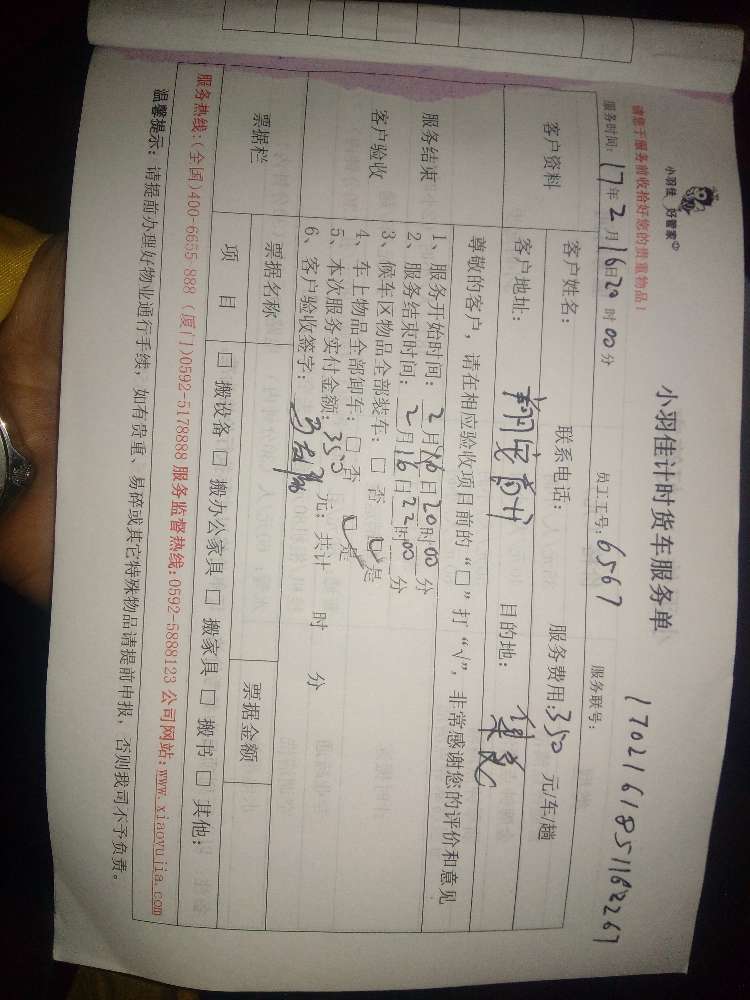 小羽佳 好管家
请您于服务前收拾好您的贵重物品！
小羽佳计时货车服务单
服务时间：17年2月16日20时00分 员工工号：6567 服务联号：17021618511182267
客户资料
客户姓名： 联系电话： 服务费用：350元/车/趟
客户地址： 目的地：集美
尊敬的客户，请在相应验收项目前的“□”打“√”，非常感谢您的评价和意见
服务结束
客户验收
1、服务开始时间：2月16日20时00分
2、服务结束时间：2月16日22时00分
3、候车区物品全部装车：□否 □是
4、车上物品全部卸车：□否 □是
5、本次服务实付金额：350元；共计 时 分
6、客户验收签字：
票据栏
票据名称 票据金额
项目 □搬设备 □搬办公家具 □搬家具 □搬书 □其他：
服务热线：(全国)400-6655-888 (厦门)0592-5178888 服务监督热线：0592-5888123 公司网站：www.xiaoyujia.com
温馨提示：请提前办理好物业通行手续，如有贵重、易碎或其它特殊物品请提前申报，否则我司不予负责。